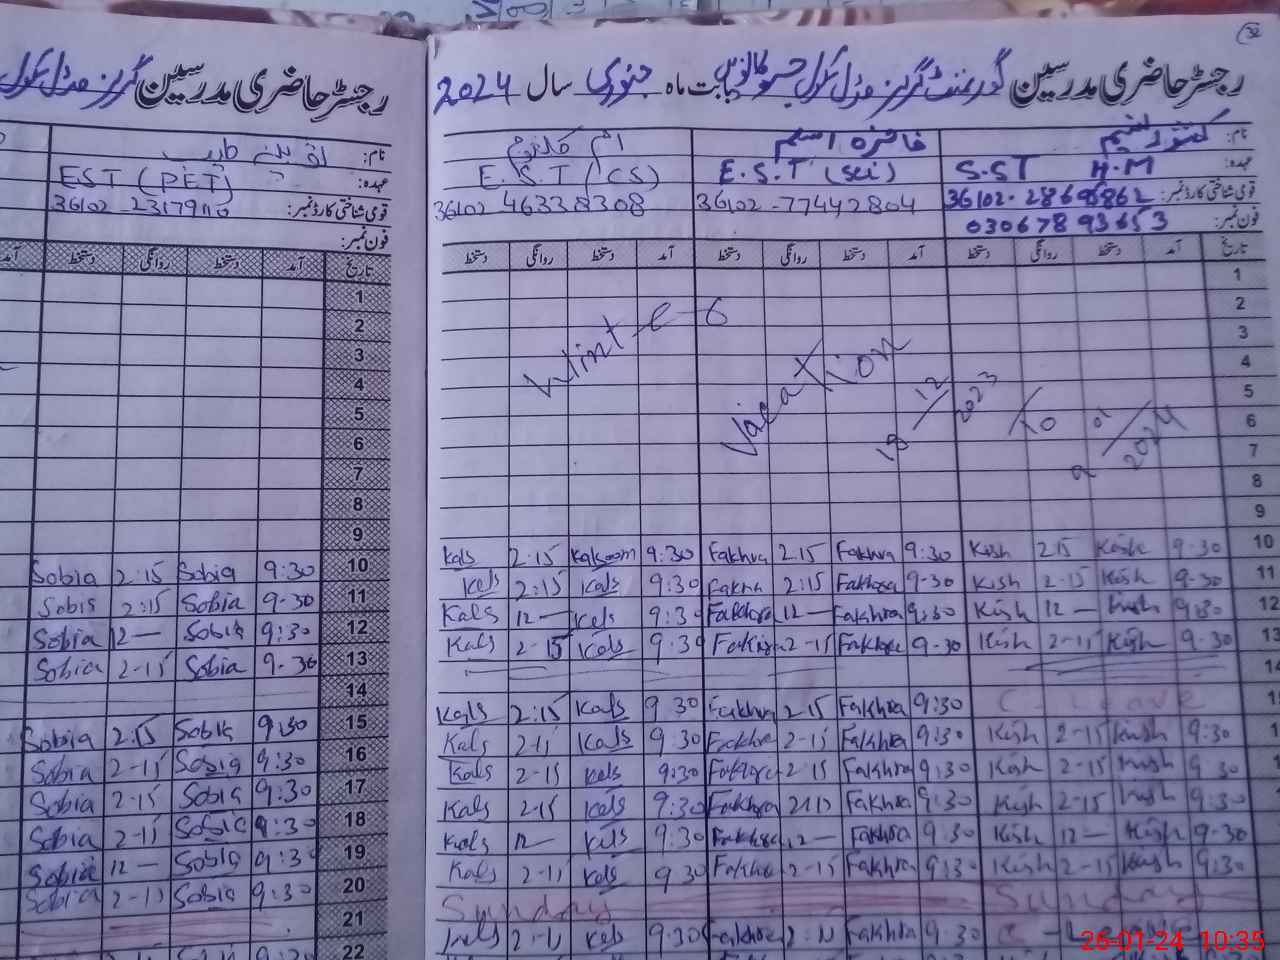 رجسٹر حاضری مدرسین گورنمنٹ گرلز مڈل سکول بابت ماہ جنوری سال 2024
نام: کشور نسیم فاخرہ اسلم ام کلثوم
عہدہ: S.S.T H.M E.S.T (Sci) E.S.T (CS)
قومی شناختی کارڈ نمبر: 36102-77442804 36102 46338308
فون نمبر: 03067893653
تاریخ آمد دستخط روانگی دستخط آمد دستخط روانگی دستخط آمد دستخط روانگی دستخط
1
2
3
4
5
6
7
8
9
Winter
Vacation
18/12 2023 to 9 01/2024
Kals 2:15 Kalsoom 9:30 Fakhra 2.15 Fakhra 9:30 Kish 2.15 Kish 9.30 10
Kals 2:15 Kals 9:30 Fakhra 2:15 Fakhra 9-30 Kish 2-15 Kish 9-30 11
Kals 12— Kals 9:30 Fakhra 12— Fakhra 9:30 Kish 12— Kish 9:30 12
Kals 2-15 Kals 9:30 Fakhra 2-15 Fakhra 9-30 Kish 2-15 Kish 9-30 13
Kals 2:15 Kals 9 30 Fakhra 2-15 Fakhra 9:30 C Leave
Kals 2-15 Kals 9:30 Fakhra 2-15 Fakhra 9:30 Kish 2-15 Kish 9:30
Kals 2-15 Kals 9:30 Fakhra 2-15 Fakhra 9:30 Kish 2-15 Kish 9 30
Kals 2-15 Kals 9:30 Fakhra 2-15 Fakhra 9:30 Kish 2-15 Kish 9:30
Kals 12— Kals 9:30 Fakhra 12— Fakhra 9.30 Kish 12— Kish 9-30
Kals 2-15 Kals 9 30 Fakhra 2-15 Fakhra 9:30 Kish 2-15 Kish 9:30
Sunday Sunday
Kals 2-15 Kals 9:30 Fakhra 2:15 Fakhra 9.30 C-Leave
رجسٹر حاضری مدرسین گرلز مڈل سکول
نام:
عہدہ: EST (PET)
قومی شناختی کارڈ نمبر:
فون نمبر:
تاریخ آمد دستخط روانگی دستخط آمد
1
2
3
4
5
6
7
8
9
Sobia 2:15 Sobia 9:30 10
Sobia 2:15 Sobia 9-30 11
Sobia 12— Sobia 9:30 12
Sobia 2-15 Sobia 9-30 13
14
Sobia 2:15 Sobia 9:30 15
Sobia 2-15 Sobia 9:30 16
Sobia 2-15 Sobia 9:30 17
Sobia 2-15 Sobia 9:30 18
Sobia 12— Sobia 9:30 19
Sobia 2-15 Sobia 9:30 20
21
22
26-01-24 10:35